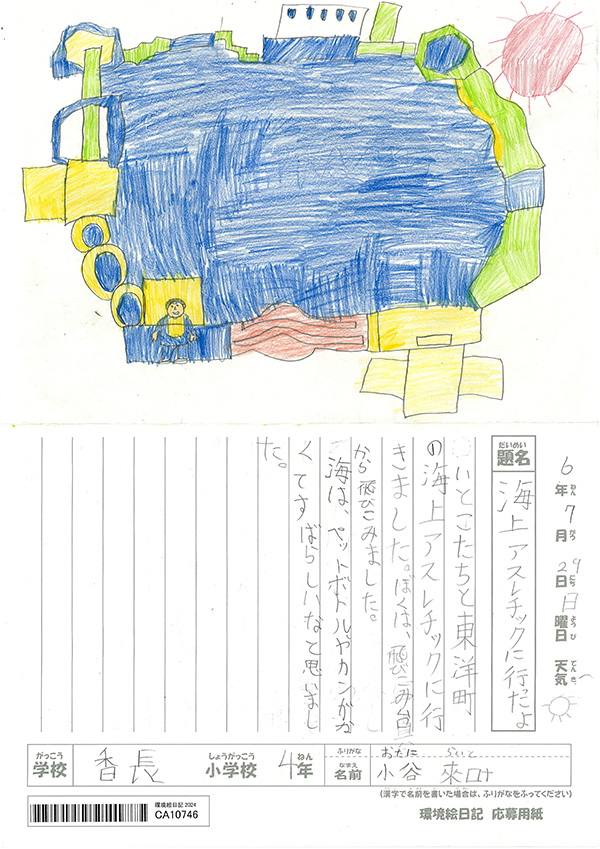 6年ねん7月がつ29日にち日曜日ようび 天気てんき
だいめい
題名
海上アスレチックに行っだよ
いとこたちと東洋町
の海上アスレチックに行
きました。ぼくは、飛びこみ台
から飛びこみました。
海は、ペットボトルやカンがな
くてすばらしいなと思いまし
た。
がっこう
学校
香長
しょうがっこう
小学校
4年ねん
ふりがな
おだに らいと
なまえ
名前
小谷 來
(漢字で名前を書いた場合は、ふりがなをふってください)
環境絵日記 2024
CA10746
環境絵日記 応募用紙